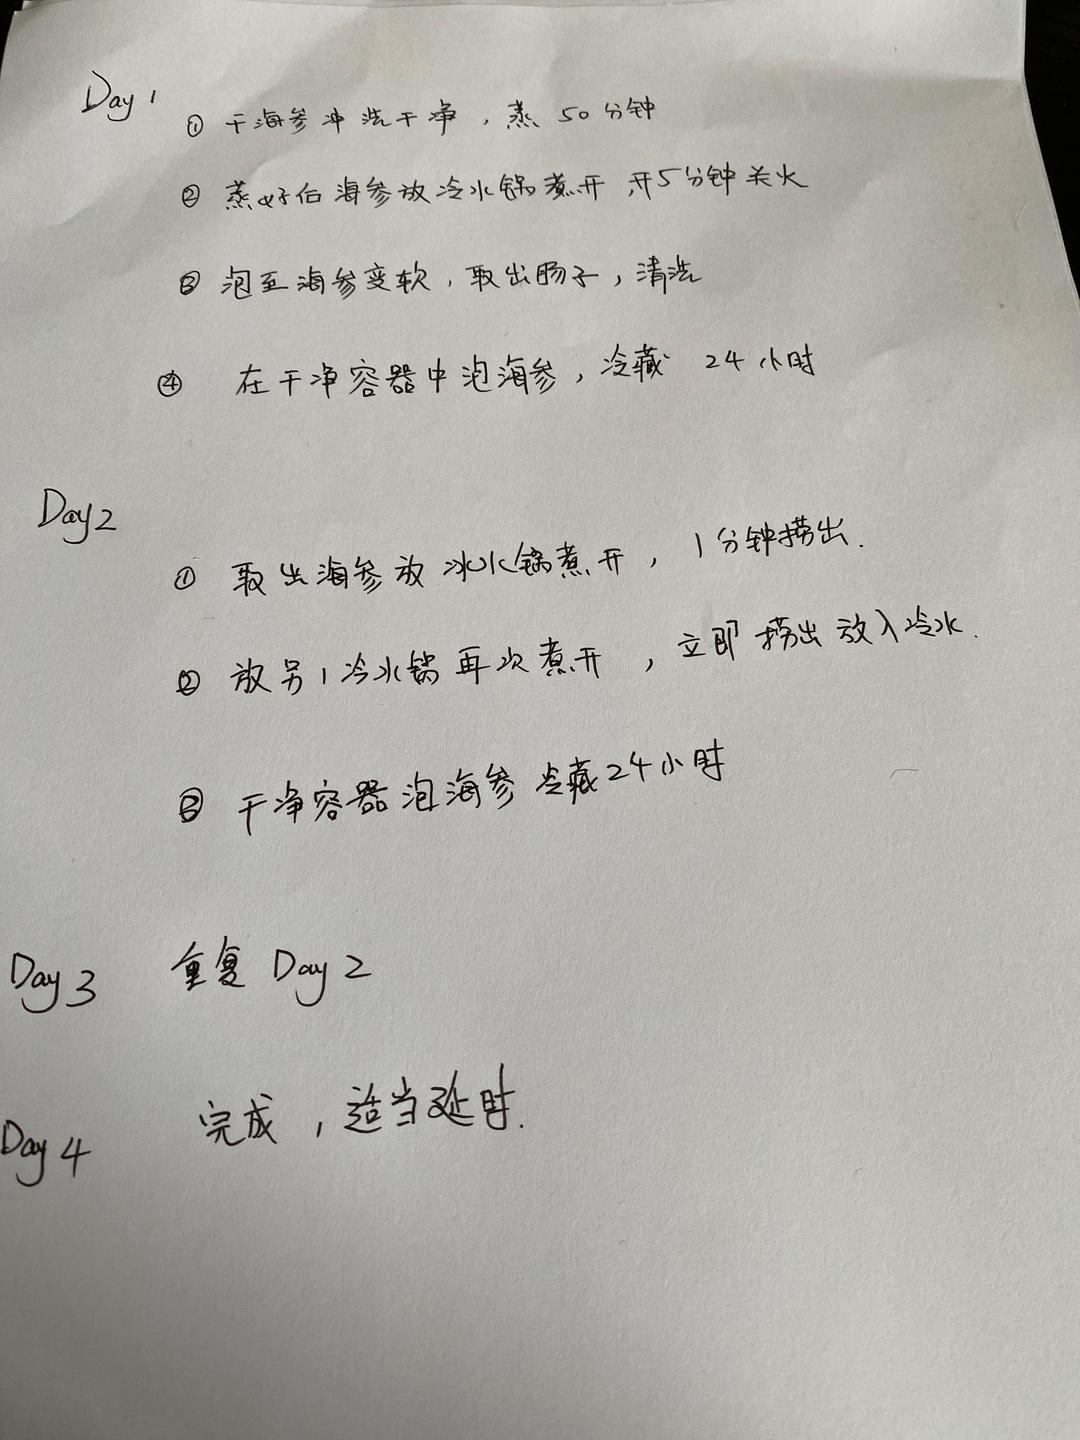 Day 1
① 干海参冲洗干净，蒸 50分钟
② 蒸好后海参放冷水锅煮开 开5分钟关火
③ 泡至海参变软，取出肠子，清洗
④ 在干净容器中泡海参，冷藏 24小时
Day2
① 取出海参放冰水锅煮开，1分钟捞出.
② 放另1冷水锅再次煮开，立即捞出放入冷水.
③ 干净容器泡海参冷藏24小时
Day3 重复 Day2
Day4 完成，适当延时.